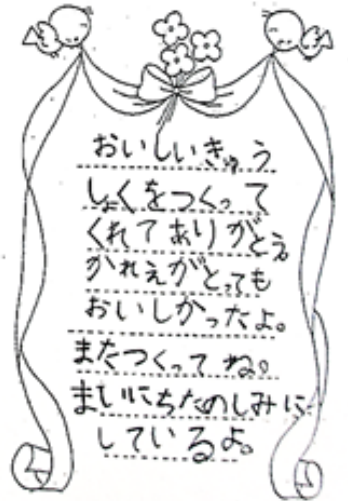 おいしいきゅう
しょくをつくって
くれてありがとう。
かれえがとっても
おいしかったよ。
またつくってね。
まいにちたのしみに
しているよ。